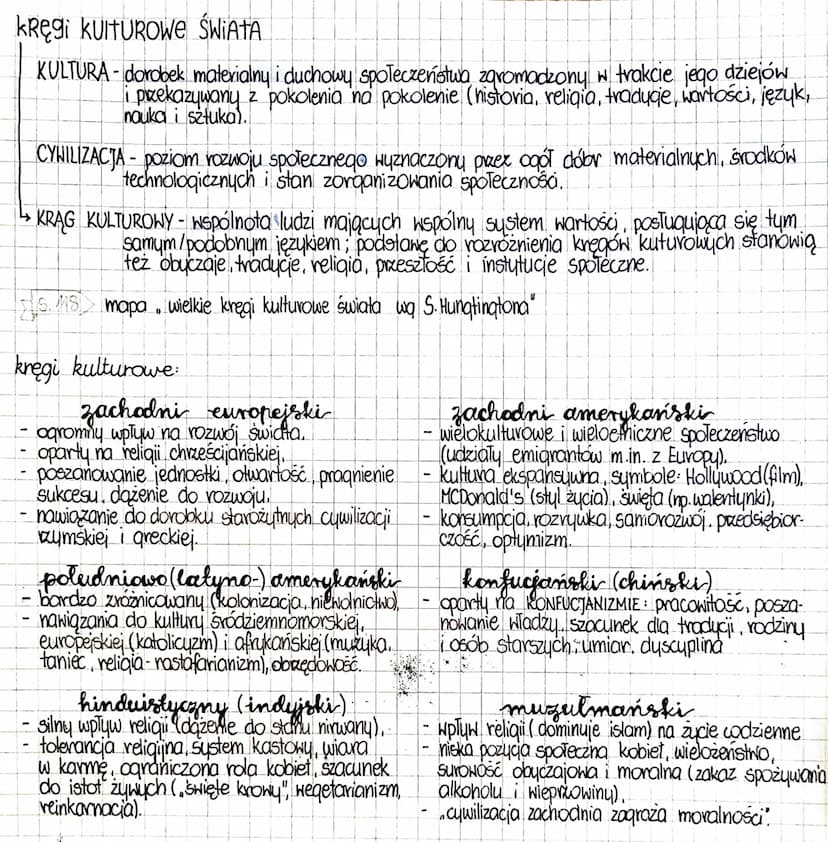 KRĘGI KULTUROWE ŚWIATA
KULTURA - dorobek materialny i duchowy społeczeństwa zgromadzony w trakcie jego dziejów
i przekazywany z pokolenia na pokolenie (historia, religia, tradycje, wartości, język,
nauka i sztuka).
CYWILIZACJA - poziom rozwoju społecznego wyznaczony przez ogół dóbr materialnych, środków
technologicznych i stan zorganizowania społeczności.
→ KRĄG KULTUROWY - wspólnota ludzi mających wspólny system wartości, posługująca się tym
samym/podobnym językiem; podstawę do rozróżnienia kręgów kuturowych stanowią
też obyczaje, tradycje, religia, przeszłość i instytucje społeczne.
s. 118 mapa „wielkie kręgi kulturowe świata wg S. Hungtingtona"
kręgi kulturowe:
zachodni europejski
- ogromny wpływ na rozwój świata.
- oparty na religii chrześcijańskiej,
- poszanowanie jednostki, otwartość, pragnienie
sukcesu, dążenie do rozwoju,
- nawiązanie do dorobku starożytnych cywilizacji
rzymskiej i greckiej.
zachodni amerykański
- wielokulturowe i wieloetniczne społeczeństwo
(udziały emigrantów m.in. z Europy),
- kultura ekspansywna, symbole: Hollywood (film),
MCDonald's (styl życia), święta (np. walentynki),
- konsumpcja, rozrywka, samorozwój, przedsiębior-
czość, optymizm.
południowo (latyno-) amerykański
- bardzo zróżnicowany (kolonizacja, niewolnictwo),
- nawiązania do kultury śródziemnomorskiej,
europejskiej (katolicyzm) i afrykańskiej (muzyka,
taniec, religia - rastafarianizm), obrzędowość.
konfucjański (chiński)
- oparty na KONFUCJANIZMIE: pracowitość, posza-
nowanie władzy, szacunek dla tradycji, rodziny
i osób starszych; umiar, dyscyplina
hinduistyczny (indyjski)
- silny wpływ religii (dążenie do stanu nirwany),
- tolerancja religijna, system kastowy, wiara
w karmę, ograniczona rola kobiet, szacunek
do istot żywych („święte krowy", wegetarianizm,
reinkarnacja).
muzułmański
- wpływ religii (dominuje islam) na życie codzienne
- niska pozycja społeczna kobiet, wielożeństwo,
surowość obyczajowa i moralna (zakaz spożywania
alkoholu i wieprzowiny),
- „cywilizacja zachodnia zagraża moralności".